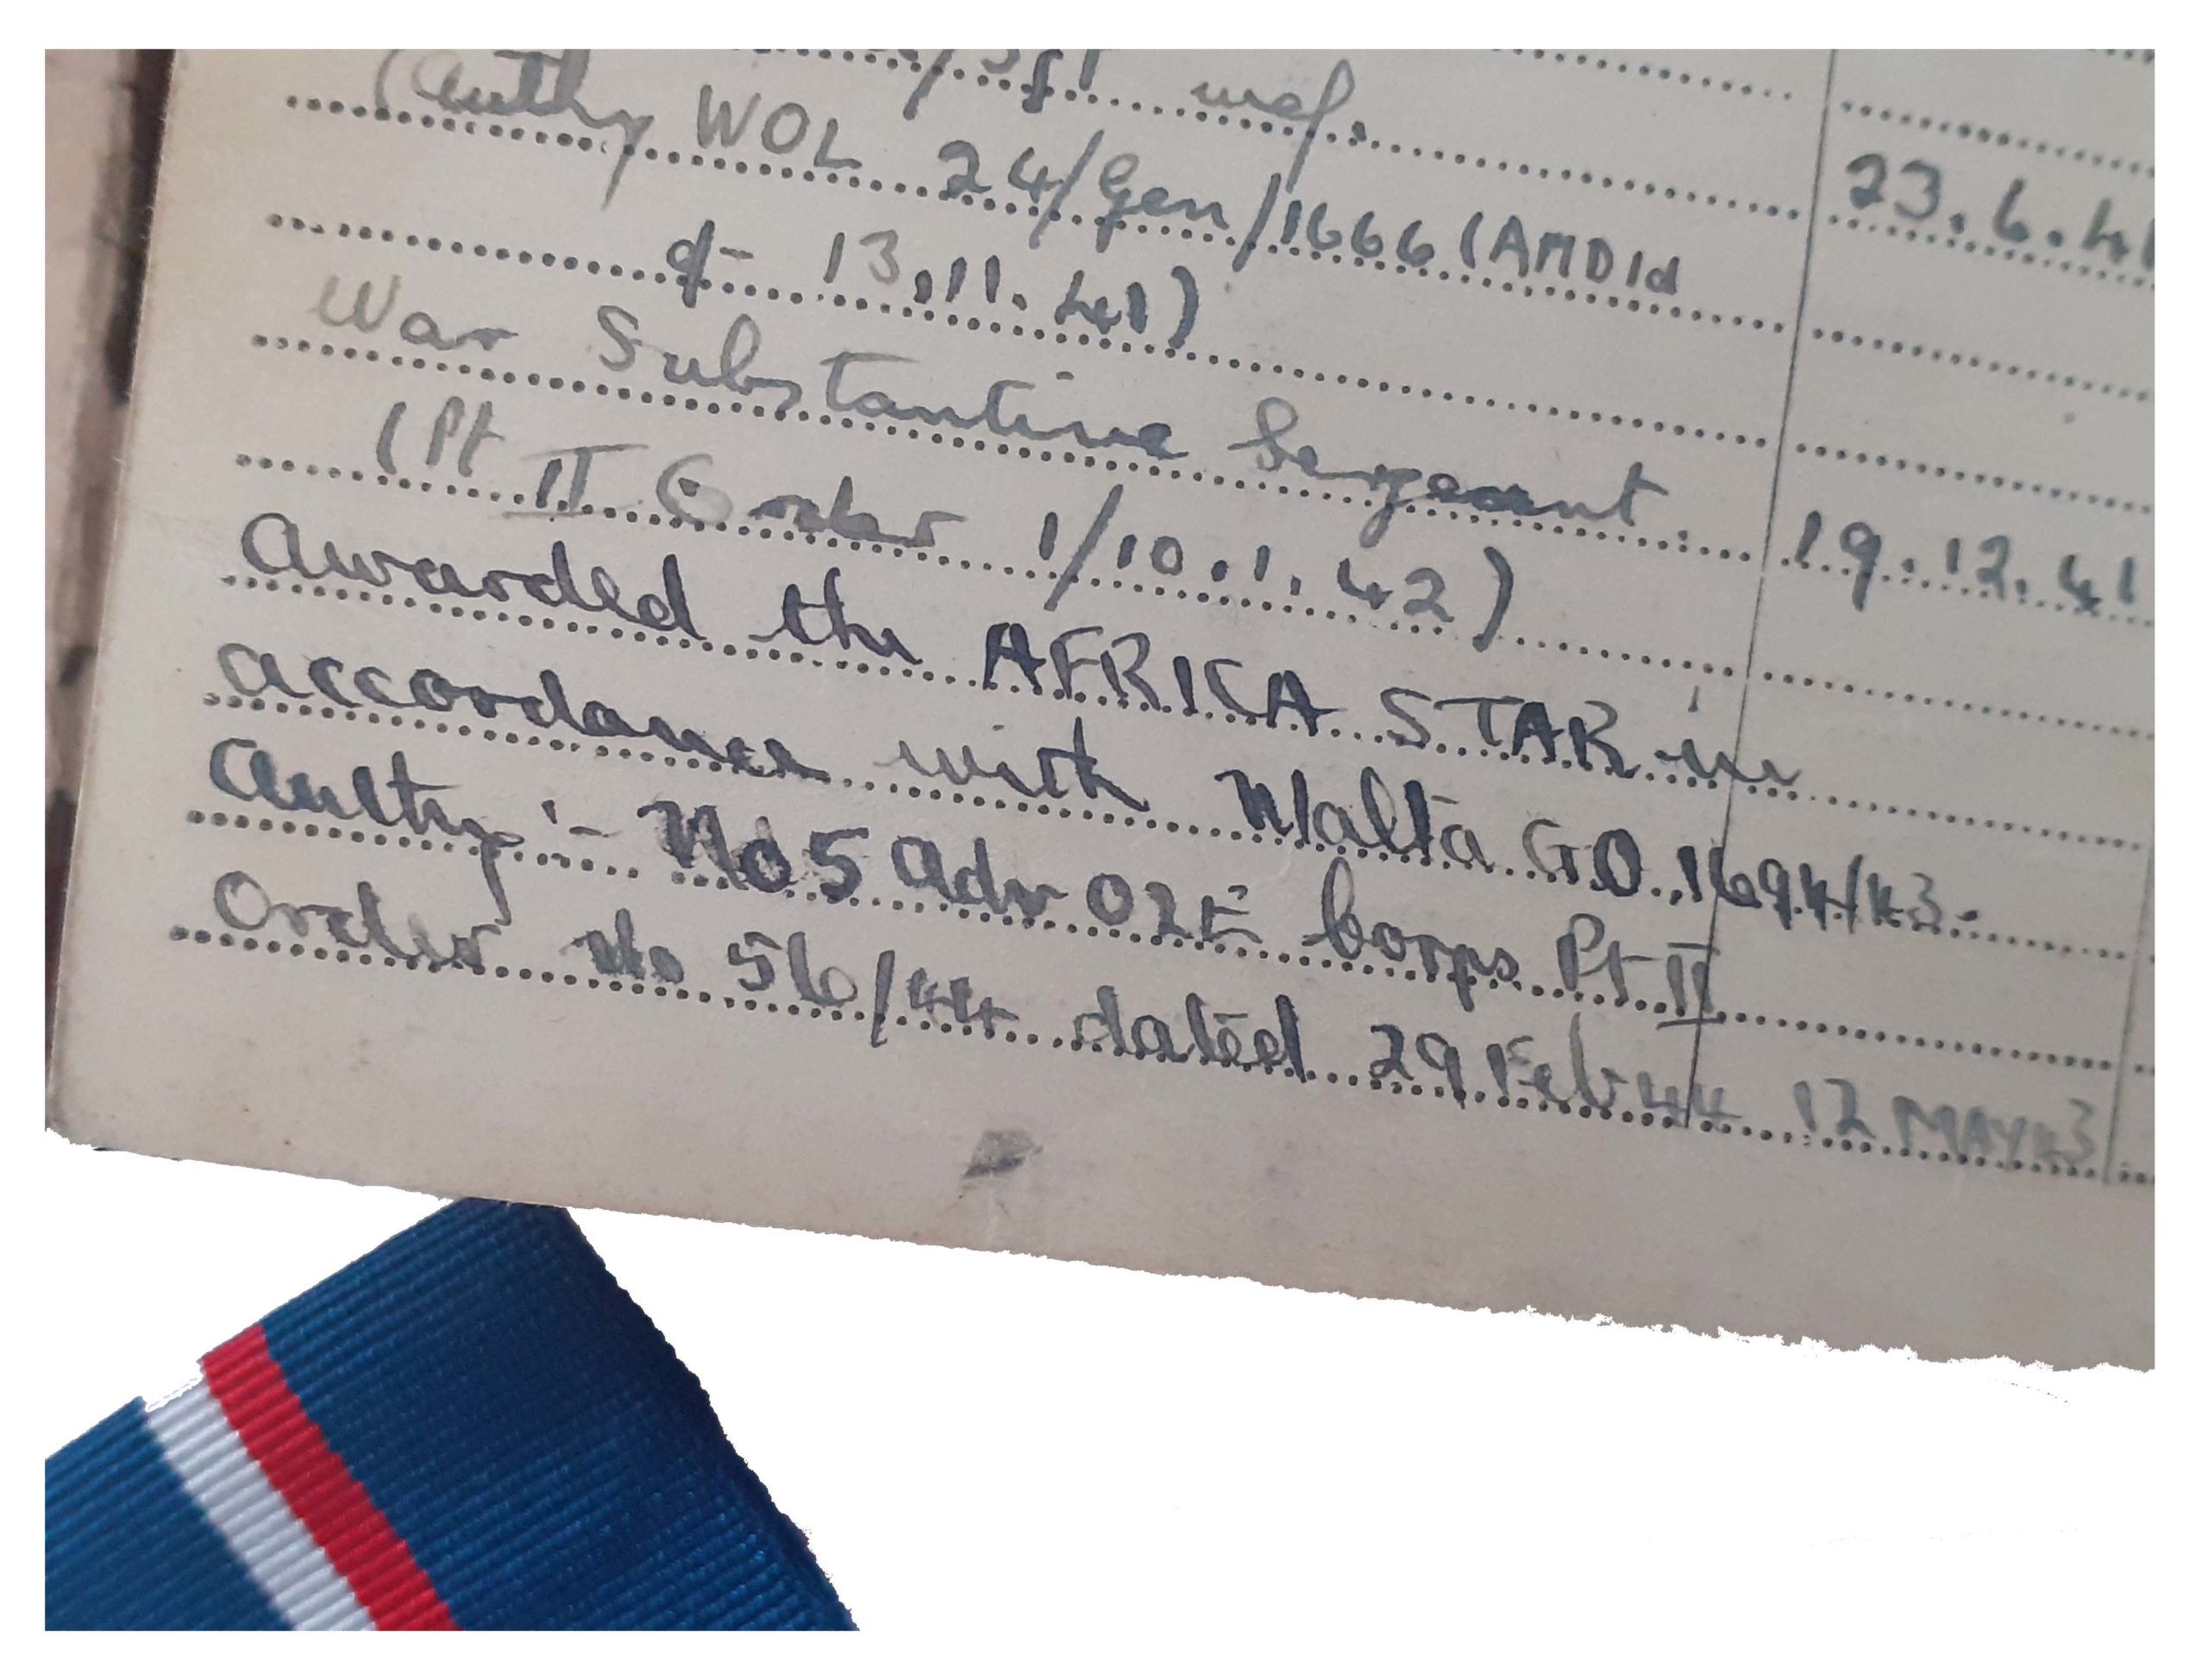 /Sgt wef. 23.6.41
(Authy WOL 24/Gen/1666 (AMD1d
d/- 13.11.41)
War Substantive Sergeant. 19.12.41
(Pt II Order 1/10.1.42)
Awarded the AFRICA STAR in
accordance with Malta GO 1694/43.
Authy :- No 5 Adv O2E Corps Pt II
Order No 56/44 dated 29 Feb 44 12 MAY 43